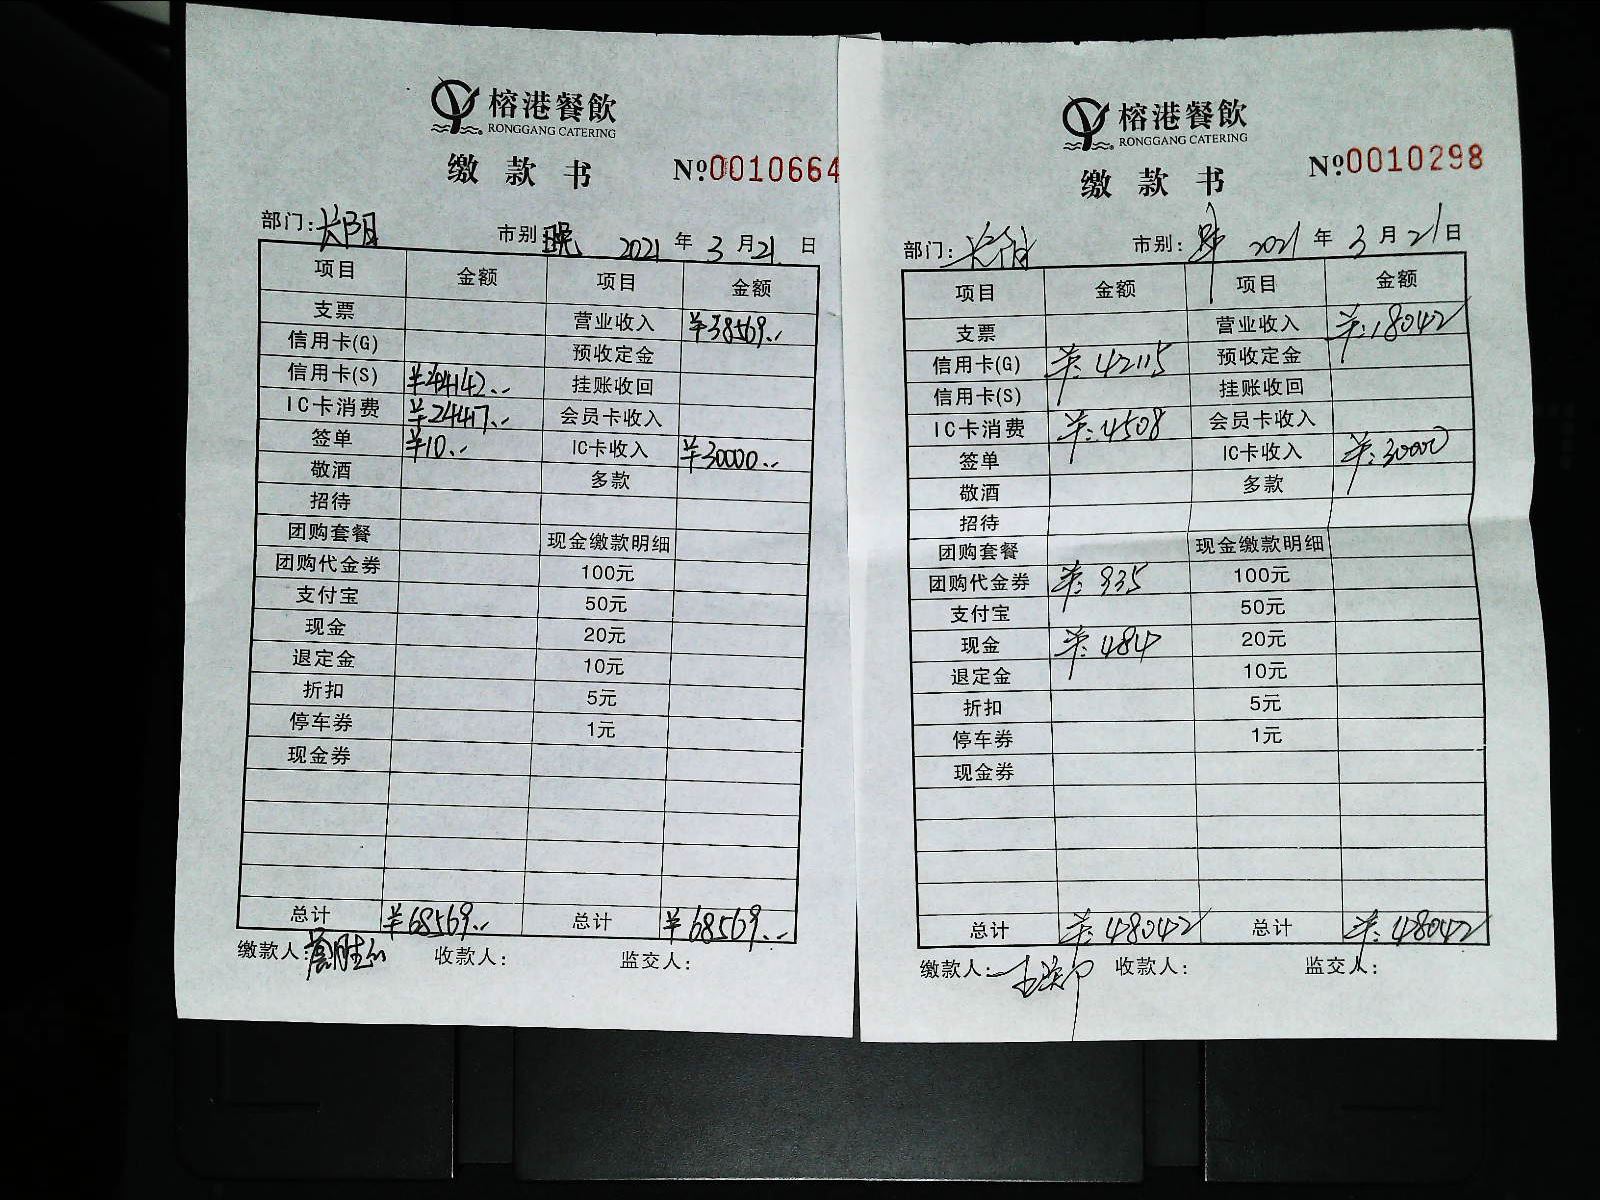 榕港餐飲
RONGGANG CATERING
缴款书 №0010664
部门：长阳 市别 晚 2021年3月21日
项目 金额 项目 金额
支票 营业收入 ¥38569.--
信用卡(G) 预收定金
信用卡(S) ¥44142.-- 挂账收回
IC卡消费 ¥24417.-- 会员卡收入
签单 ¥10.-- IC卡收入 ¥30000.--
敬酒 多款
招待
团购套餐 现金缴款明细
团购代金券 100元
支付宝 50元
现金 20元
退定金 10元
折扣 5元
停车券 1元
现金券
总计 ¥68569.-- 总计 ¥68569.--
缴款人： 收款人： 监交人：
榕港餐飲
RONGGANG CATERING
缴款书 №0010298
部门： 市别： 2021年3月21日
项目 金额 项目 金额
支票 营业收入 ¥:18042
信用卡(G) ¥:42115 预收定金
信用卡(S) 挂账收回
IC卡消费 ¥:4508 会员卡收入
签单 IC卡收入 ¥:30000
敬酒 多款
招待
团购套餐 现金缴款明细
团购代金券 ¥:935 100元
支付宝 50元
现金 ¥:484 20元
退定金 10元
折扣 5元
停车券 1元
现金券
总计 ¥:48042 总计 ¥:48042
缴款人： 收款人： 监交人：